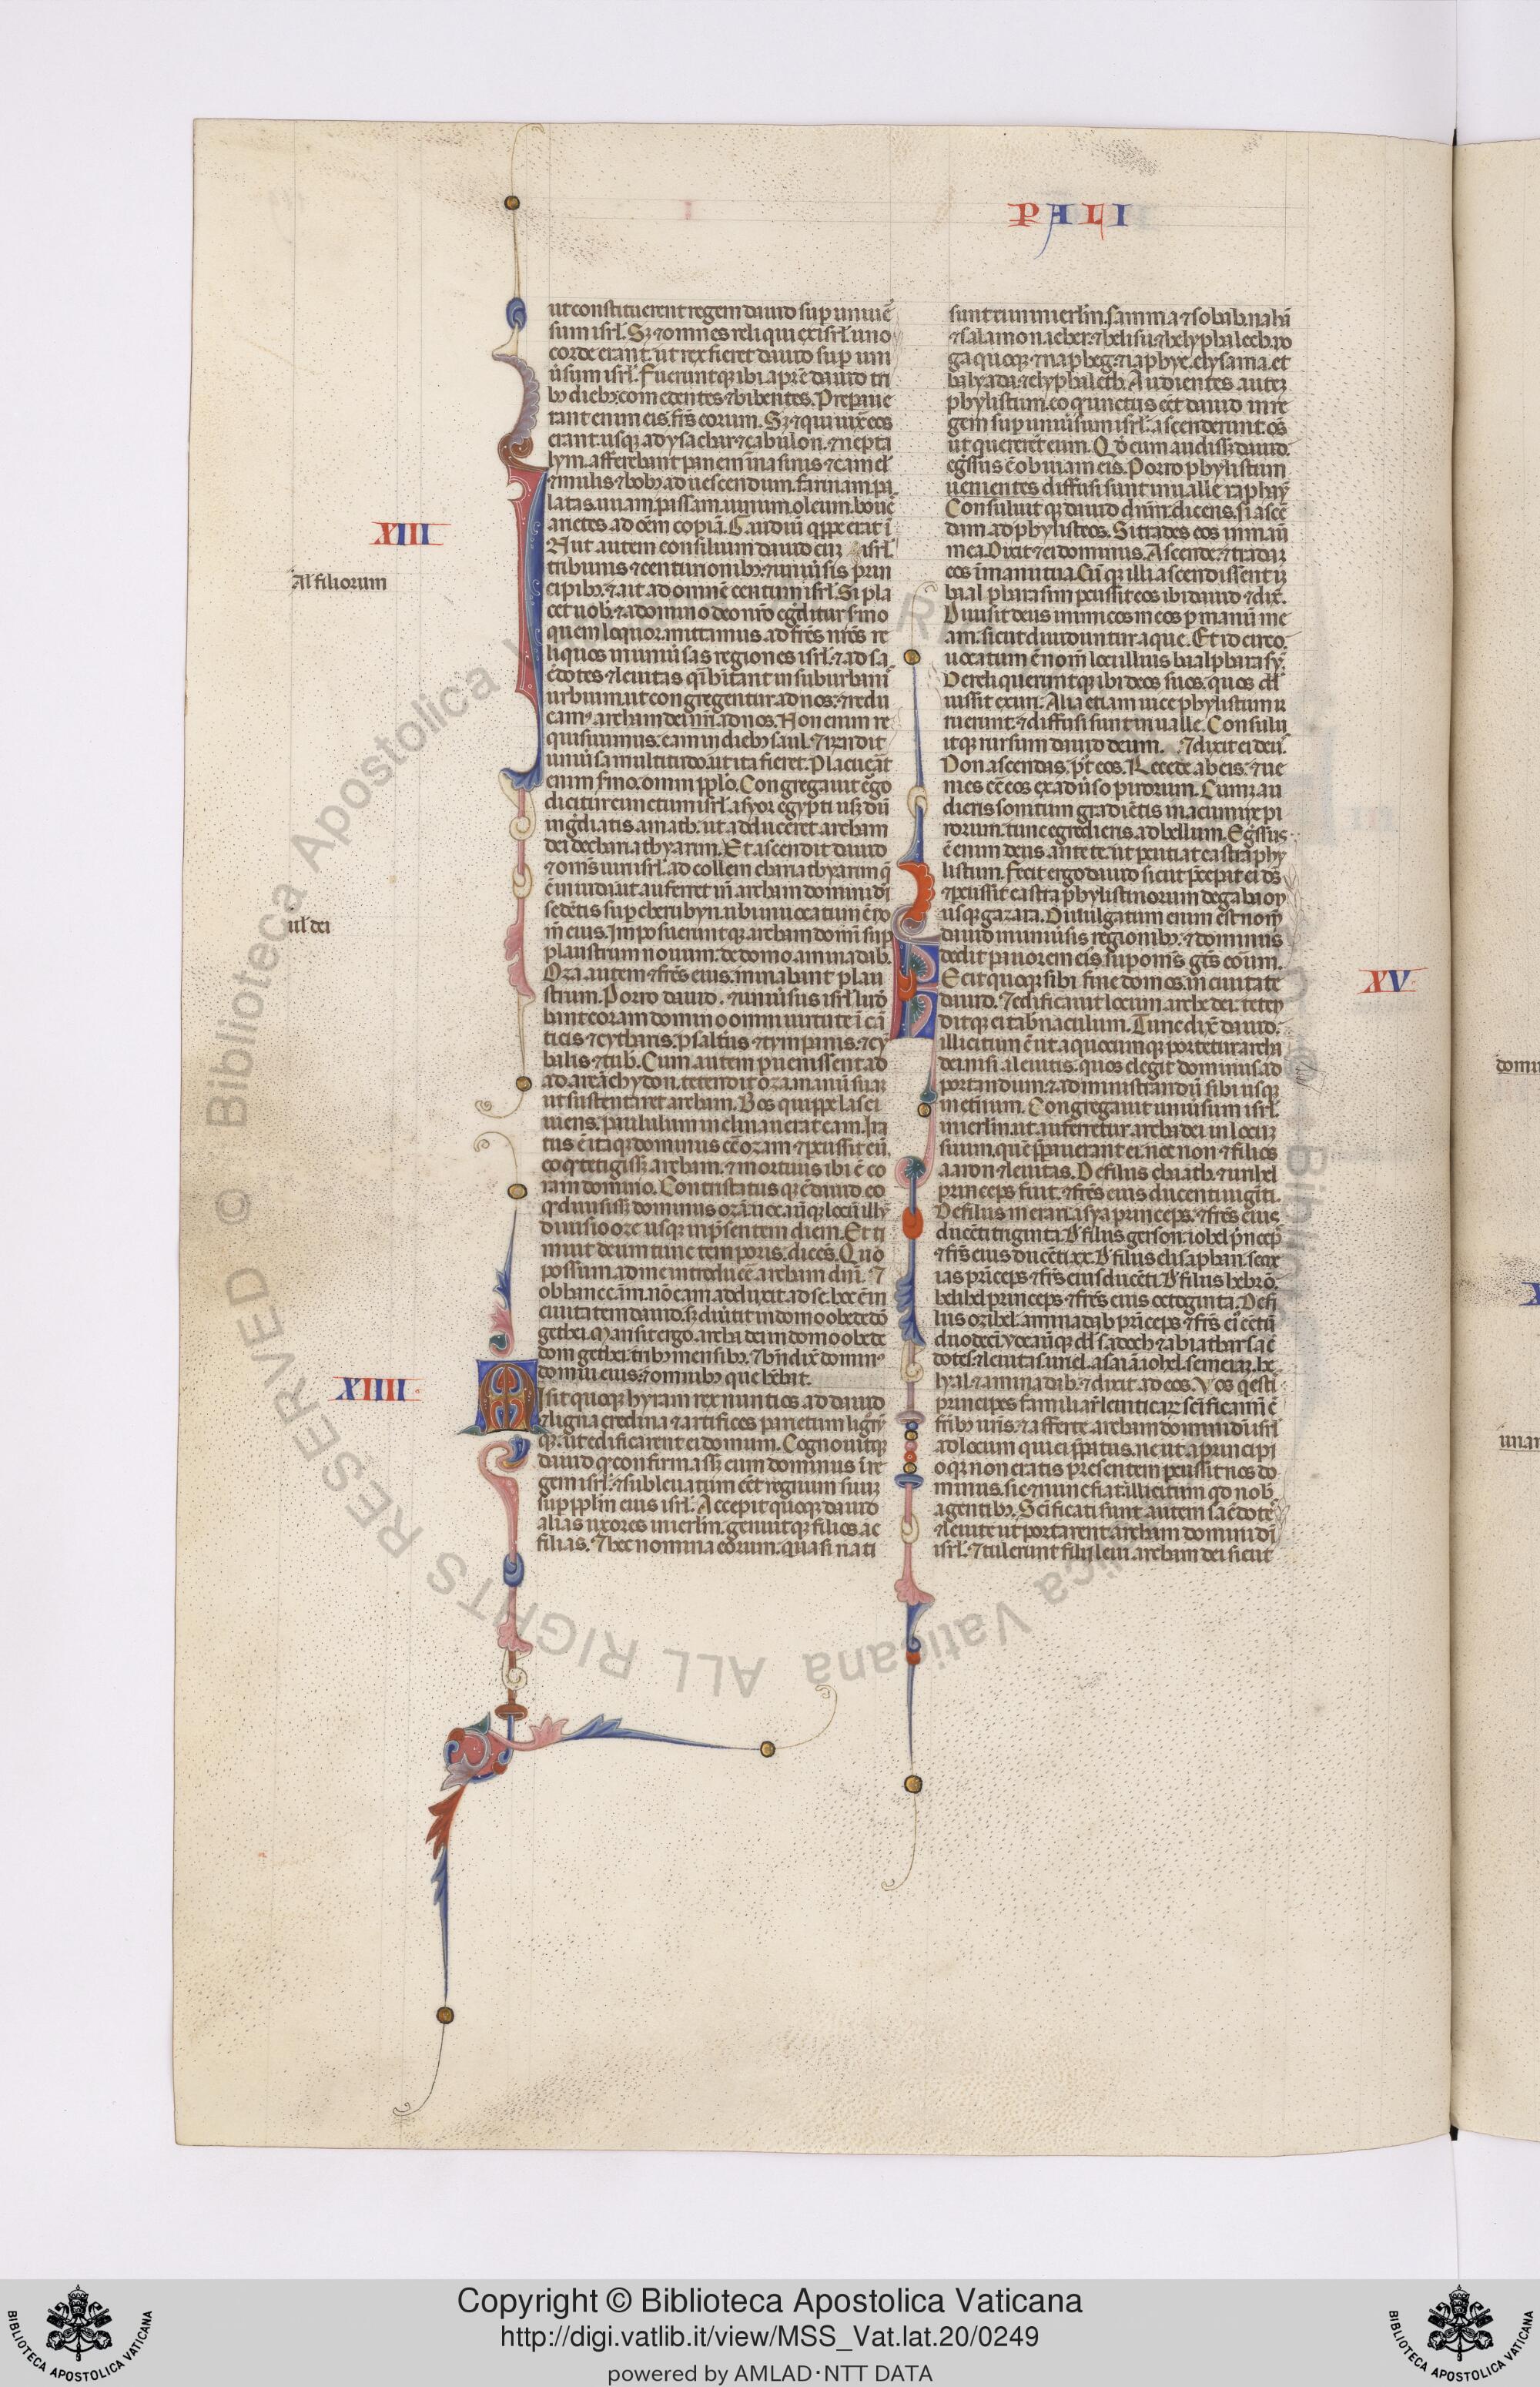 PALI
ut constituerent regem dauid sup uniuẽ
sum isrł. Sꝫ ⁊ omnes reliqui ex isrł. uno
corde erant. ut rex fieret dauid sup uni
ũsum isrł. Fuerunt qꝫ ibi apᷓ dauid tri
bꝫ diebꝫ. comedentes ⁊ bibentes. Prepaue
rant enim eis. fr̃s eorum. Sꝫ ⁊ qui iuxᷓ eos
erant usqꝫ ad ysachar ⁊ çabulon. ⁊ nepta
lym. afferebant panem in asinis ⁊ camel
⁊ mulis ⁊ bobꝫ ad uescendum. farinam. pa
latas. uuam. passam. uinum. oleum. bouẽ
arietes ad oẽm copiã. Gaudiũ qppe erat ĩ
XIII
Nut autem consilium dauid cuꝫ isrł.
tribunis ⁊ centurionibꝫ. ⁊ uniũsis prin
cipibꝫ. ⁊ ait ad omnẽ centum isrł. Si pla
Al filiorum
cet uob̃. ⁊ a domino deo nrõ egditur s̃mo
quem loquor. mittamus ad fr̃es nr̃os re
liquos in uniũsas regiones isrł. ⁊ ad sa
c̃dotes ⁊ leuitas q̃ hĩtant in suburbani
urbium. ut congregentur ad nos. ⁊ redu
cam᷒ archam dei nr̃i. ad nos. Non enim re
quisiuimus. eam in diebꝫ saul. ⁊ rñdit
uniũsa multitudo. ut ita fieret. Placuãt
enim s̃mo. omni pplõ. Congregauit ergo
dicitur cunctum isrł. a syor egypti usꝫ dũ
ingdiatis amath. ut adduceret archam
dei de chariathyarim. Et ascendit dauid
⁊ om̃s uiri isrł. ad collem chariathyarim q̃
ẽ in iuda. ut auferret in̄ archam domini dĩ
ul dei
sedẽtis sup cherubyn. ubi inuocatum ẽ no
m̃ eius. Imposuerunt qꝫ archam domĩ sup
plaustrum nouum. de domo aminadab.
Oza autem ⁊ fr̃es eius. minabant plau
strum. Porro dauid. ⁊ uniũsus isrł. ludẽ
bant coram domino omni uirtute ĩ cã
ticis ⁊ cytharis. psalt̃iis ⁊ tympanis. ⁊ cy
balis ⁊ tub̃. Cum autem puenissent ad
ad areã chydon. tetendit oza. manũ suaꝫ
ut sustentaret archam. Bos quippe lasci
uiens. paululum inclinauerat eam. Ira
tus ẽ itaqꝫ dominus cõ ozam. ⁊ pcussit eũ.
eo q tetigissꝫ archam. ⁊ mortuus ibi ẽ co
ram domino. Contristatus qꝫ ẽ dauid eo
q diuisissꝫ dominus ozã. uocauitqꝫ locũ illũ
diuisio oze usqꝫ in p̃sentem diem. Et ti
muit deum tunc temporis. dicẽs. Quo
possum ad me introducẽ archam dñi. ⁊
ob hanc cãm. nõ eam adduxit ad se. hoc ẽ in
ciuitatem dauid. sꝫ diũtit in domo obededõ
gethei. Mansit ergo. archa dei in domo obede
dom gethei. tribꝫ mensibꝫ. ⁊ bñdix̃ domin᷒
domui eius. ⁊ omnibꝫ que hẽbat.
XIIII
Misit quoqꝫ hyram rex nuntios ad dauid
⁊ ligna cedrina ⁊ artifices parietum lignoꝝ
qꝫ. ut edificarent ei domum. Cognouitqꝫ
dauid q confirmassꝫ eum dominus ĩ re
gem isrł. ⁊ subleuatum eẽt regnum suuꝫ
sup pplm eius isrł. Accepit quoqꝫ dauid
alias uxores in ierlm̃. genuit qꝫ filios ac
filias. ⁊ hec nomina eorum. qui nati
sunt ei in ierlm̃. samma ⁊ sobab. nathã
⁊ salamon. iaeber. ⁊ helisu. ⁊ helyphaleth. no
ga quoqꝫ ⁊ napheg. ⁊ iaphye. elysama. et
balyada. ⁊ elyphaleth. Audientes autem
phylistiim. eo q unctus eẽt dauid in re
gem sup uniũsum isrł. ascenderunt. oẽs
ut quererẽt eum. Qđ cum audissꝫ dauid.
eg̃ssus ẽ obuiam eis. Porro phylistiim
uenientes diffusi sunt in ualle raphaỹ
Consuluit qꝫ dauid dñm. dicens. si ascẽ
dam ad phylisteos. Si trades eos in manũ
mea. Dixit ⁊ ei dominus. Ascende. ⁊ tradaꝫ
eos ĩ manu tua. Cũ qꝫ illi ascendissent ĩ
baal pharasim pcussit eos ibi dauid ⁊ dix̃.
Diuisit deus inimicos meos p manũ me
am. sicut diuiduntur aque. Et idcirco
uocatum ẽ nom̃ loci illius baalpharasỹ.
Dereliquerunt qꝫ ibi deos suos. quos dd̃
iussit exuri. Alia etiam uice phylistiim ir
ruerunt. ⁊ diffusi sunt in ualle. Consulu
itqꝫ rursum dauid deum. ⁊ dixit ei deũ.
Non ascendas. p̃t eos. Recede ab eis. ⁊ ue
nies cõ eos ex adũso pirorum. Cumꝫ au
dieris sonitum gradiẽtis in cacumine pi
rorum. tunc egredieris. ad bellum. Eg̃ssus
ẽ enim deus ante te. ut pcutiat castra phy
listiim. Fecit ergo dauid sicut p̃cepit ei ds̃
⁊ pcussit castra phylistinorum de gabaon
usqꝫ gazara. Diuulgatum enim est nom̃
dauid in uniũsis regionibꝫ. ⁊ dominus
dedit pauorem eis. sup om̃s gẽs eorum.
XV
Fecit quoqꝫ sibi fine domos. in ciuitate
dauid. ⁊ edificauit locum arche dei. teten
ditqꝫ ei tab̃naculum. Tunc dix̃ dauid.
illicitum ẽ ut a quocumqꝫ portetur archa
dei. nisi a leuitis. quos elegit dominus. ad
portandum. ⁊ ad ministrandũ sibi usqꝫ
in et̃num. Congregauit uniũsum isrł.
in ierlm̃. ut auferretur archa dei in locuꝫ
suum. quẽ pp̃auerant ei. nec non ⁊ filios
aaron ⁊ leuitas. De filiis chaath. ⁊ urihel
princeps fuit. ⁊ fr̃es eius ducenti uigĩti.
De filiis merari. asya princeps. ⁊ fr̃es eius
ducẽti triginta. D filiis gerson. iohel p̃ncep̃
⁊ fr̃s eius ducẽti. xx. D filiis elisaphan. seme
ias prĩceps ⁊ fr̃s eius ducẽti. D filiis hebrõ.
helihel princeps ⁊ fr̃es eius octoginta. De fi
liis ozihel. aminadab prĩceps ⁊ fr̃s eĩ cẽtũ
duodeci. Vocauitqꝫ dd̃ sadoch ⁊ abiathar sac̃
dotes. ⁊ leuitas. uriel. asaiã. iohel. semeiaꝫ. he
lyal. ⁊ aminadab. ⁊ dixit ad eos. Vos q̃ esti
principes familiaꝝ leuiticaꝝ. sc̃ificamĩ c̃
fr̃ibꝫ ur̃is. ⁊ afferte archam domini dĩ isrł
ad locum qui ei pp̃atus. ne ut a principi
o qꝫ non eratis presentem pcussit nos do
minus. sic ⁊ nunc fiat. illicitum qđ nob̃.
agentibꝫ. Sc̃ificati sunt autem sac̃dotẽ
⁊ leuite ut portarent archam domini dĩ
isrł. ⁊ tulerunt filij leui. archam dei sicut
Copyright © Biblioteca Apostolica Vaticana
http://digi.vatlib.it/view/MSS_Vat.lat.20/0249
powered by AMLAD·NTT DATA